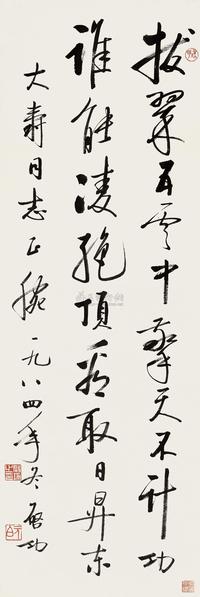 拔翠五云中擎天不计功
谁能凌绝顶看取日昇东
大寿同志正腕一九八四年冬启功